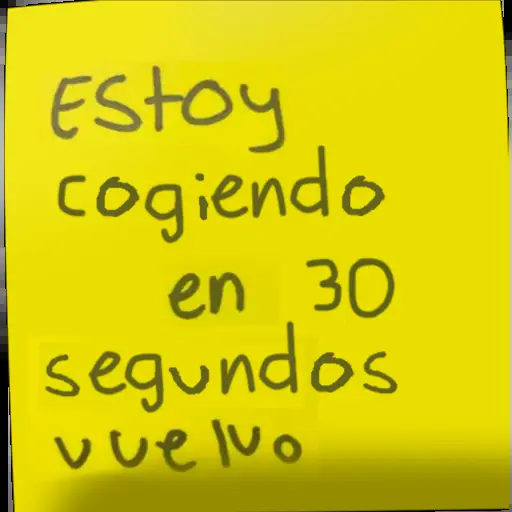 Estoy
cogiendo
en 30
segundos
vuelvo